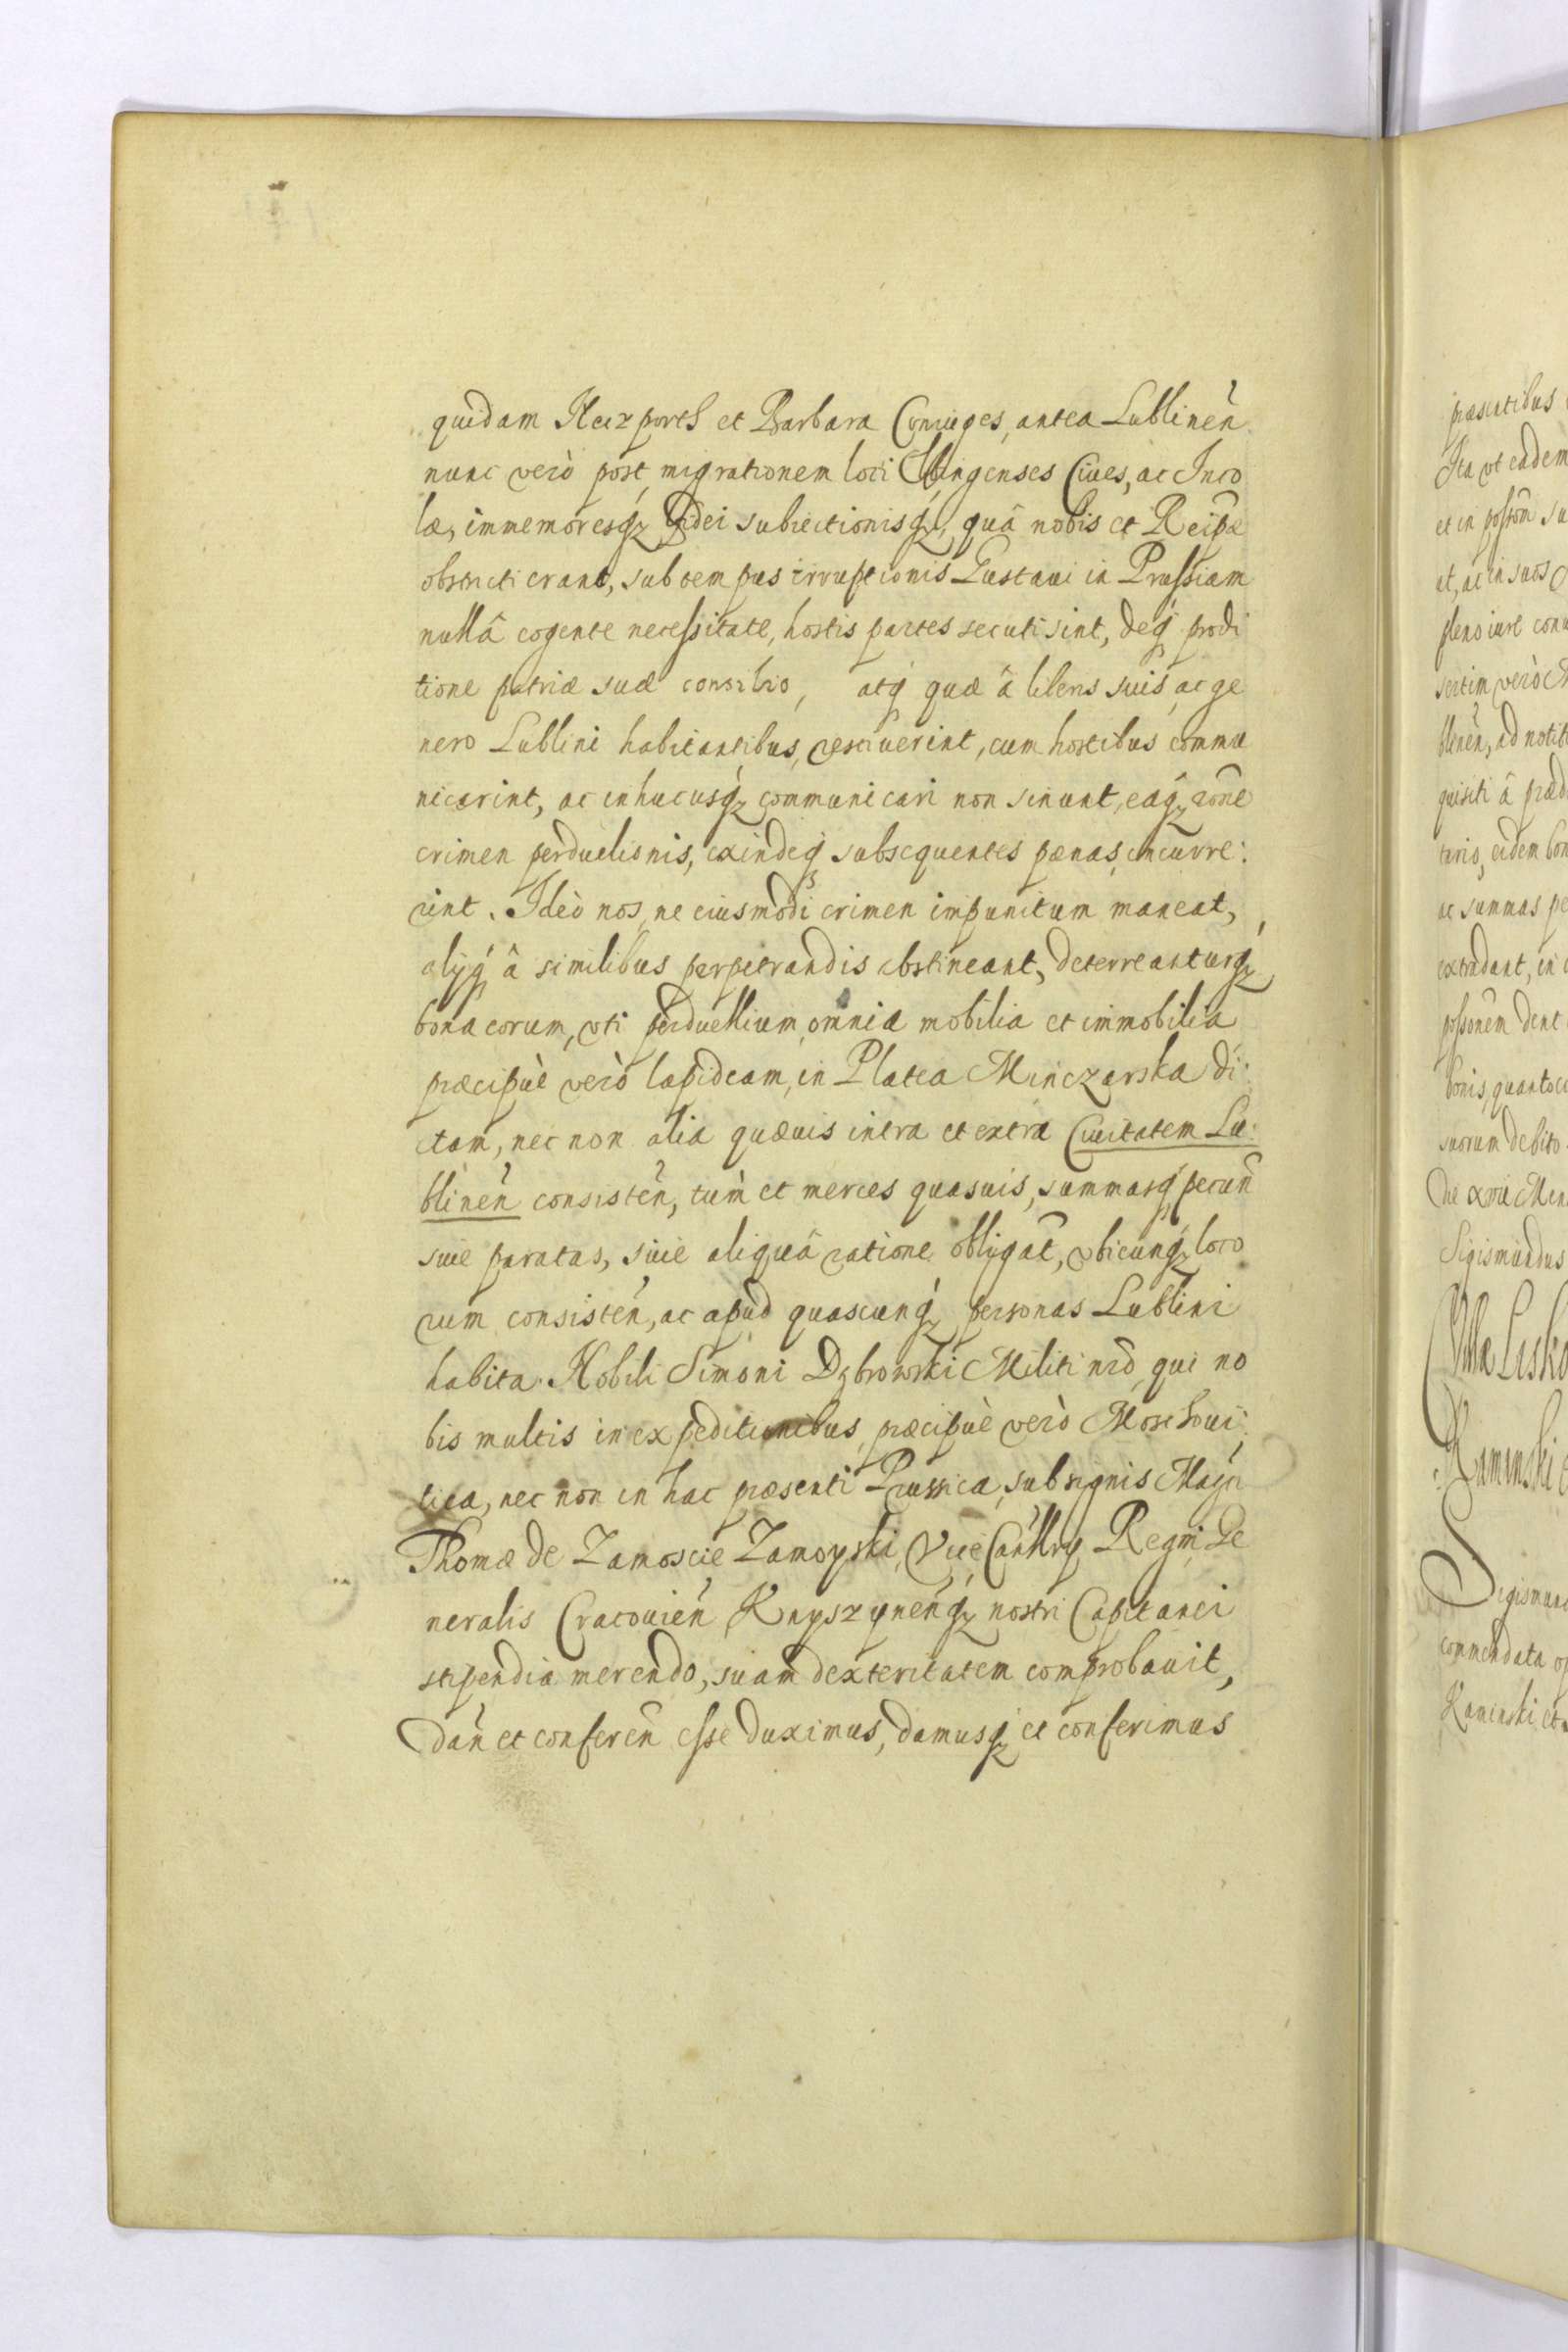 quidam Herzports et Barbara Coniuges, antea Lublineñ
nunc verò post migrationem loci Elbingenses Ciues, ac Inco
læ, immemoresq́ fidei subiectionisq́, quâ nobis et Reipæ
obstricti erant, sub tempus irruptionis Gustaui in Prussiam
nullâ cogente necessitate, hostis partes secuti sint, deq́ prodi
tione patriæ suæ consilio, atq́ quæ â liberis suis, ac ge
nero Lublini habitantibus, resciuerint, cum hostibus commu
nicarint, ac in hucusq́ communicari non sinunt, eáq́ rõne
crimen perduelionis, exindeq́ subsequentes pænas, incurre:
rint. Ideò nos, ne eiusmodi crimen impunitum maneat,
alijq́ â similibus perpetrandis abstineant, deterreanturq́
bona eorum, vti perduellium, omnia mobilia et immobilia
præcipuè verò lapideam, in Platea Minczarska di:
ctam, nec non alia quæuis intra et extra Ciuitatem Lu:
blineñ consisteñ, tùm et merces quasuis, summasq́ pecuñ
siue paratas, siue aliquâ ratione obligat̃, vbicunq́ loco
rum consisteñ, ac apud quascunq́ personas Lublini
habita. Nobili Simoni Dąbrowski Militi nr̃o, qui no
bis multis in expeditionibus, præcipuè verò Moschoui:
tica, nec non in hac præsenti Prussica, sub signis Magñ
Thomæ de Zamoscie Zamoyski, ViceCanllrij Regni, Ge
neralis Cracouieñ Knyszyneñq́ nostri Capitanei
stipendia merendo, suam dexteritatem comprobauit,
dañ et confereñ esse duximus, damusq́ et conferimus
præsentibus
Ita vt eadem
et in possoñ su
et, ac in suos
pleno iure conu
sertim verò
blineñ, ad notit
quisiti â præd
tario, eidem bon
ac summas pe
extradant, in
possonem dent
bonis, quantoci
suorum debito
die xvii Men
Sigismundus
Villæ Lisko
Kaminski
Sigismund
commendata
Kaminski et